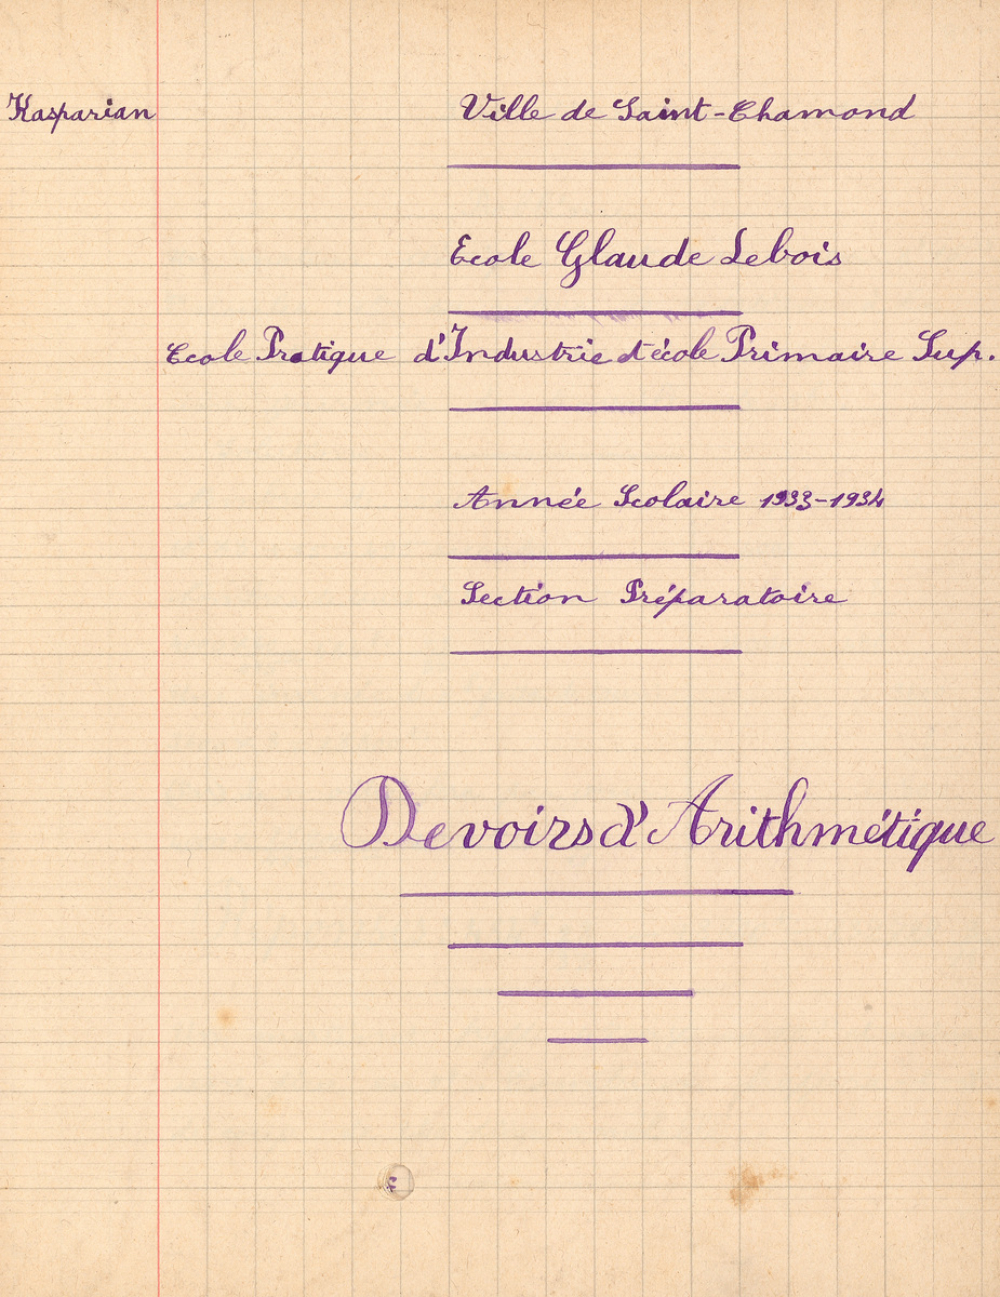 Kasparian
Ville de Saint-Chamond
Ecole Claude Lebois
Ecole Pratique d'Industrie et école Primaire Sup.
Année Scolaire 1933-1934
Section Préparatoire
Devoirs d'Arithmétique